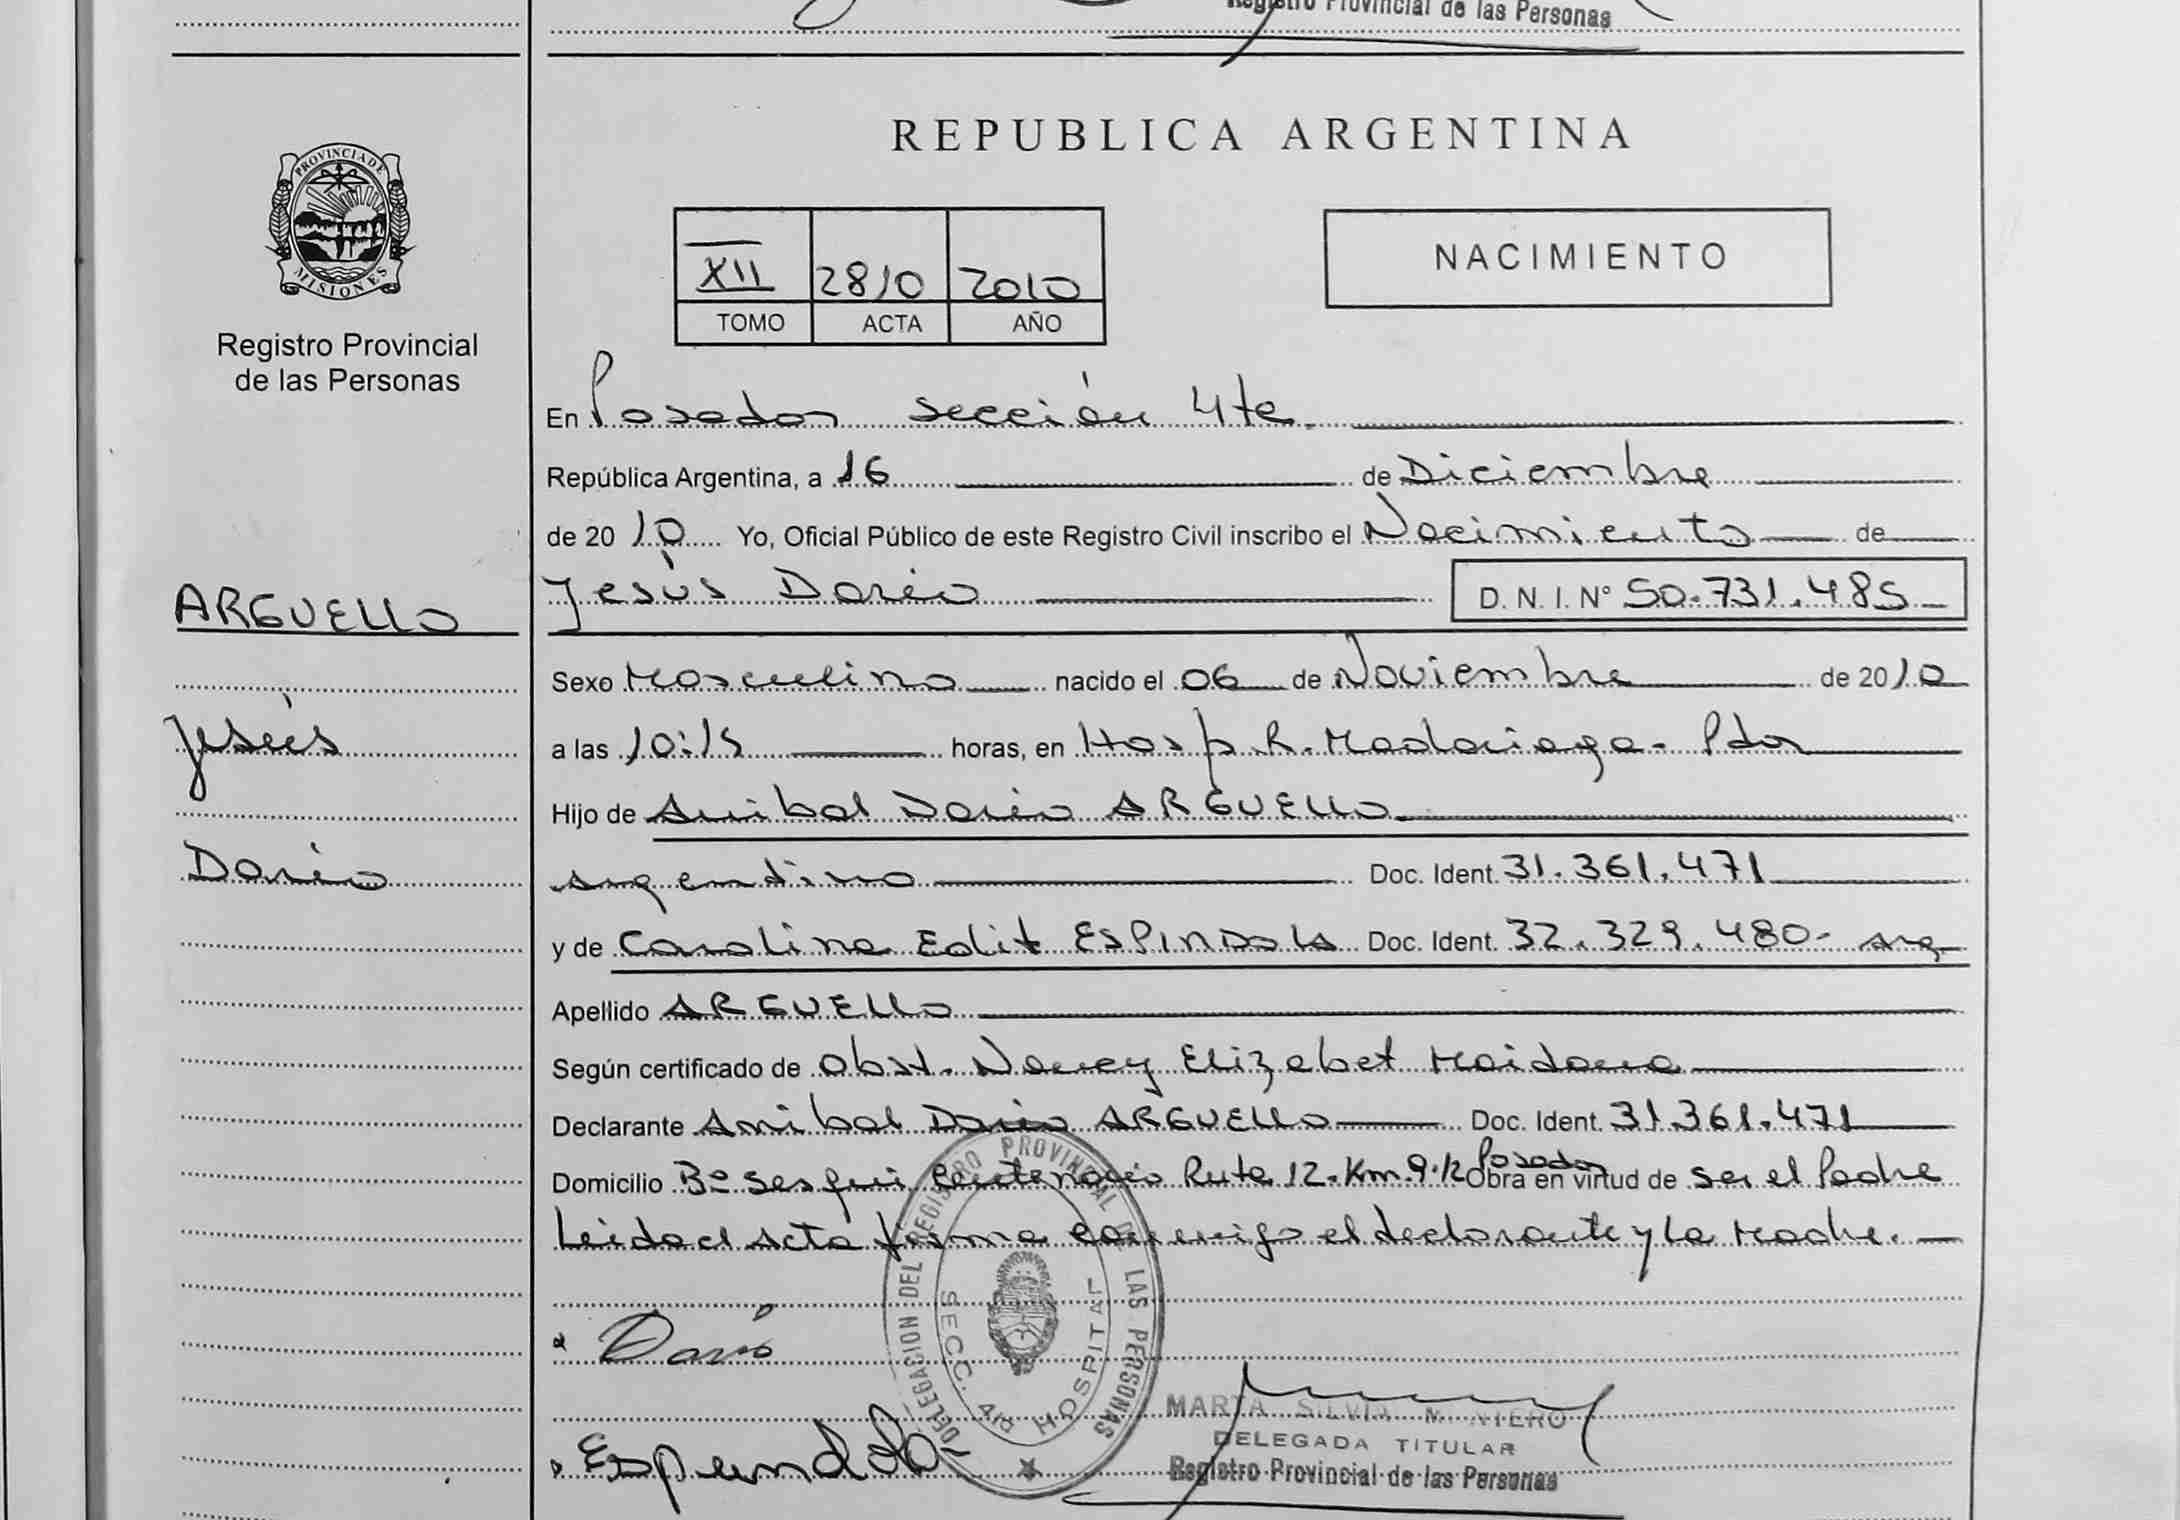 Registro Provincial de las Personas
PROVINCIA DE
MISIONES
Registro Provincial
de las Personas
REPUBLICA ARGENTINA
XII 2810 2010
TOMO ACTA AÑO
NACIMIENTO
En Posadas sección 4ta.
República Argentina, a 16 de Diciembre
de 2010 Yo, Oficial Público de este Registro Civil inscribo el Nacimiento de
Jesús Dario D. N. I. N° 50.731.485
ARGUELLO
Jesús
Dario
Sexo Masculino nacido el 06 de Noviembre de 2010
a las 10:15 horas, en Hosp. R. Madariaga - Pdas
Hijo de Anibal Dario ARGUELLO
argentino Doc. Ident. 31.361.471
y de Carolina Edit ESPINDOLA Doc. Ident. 32.329.480- arg
Apellido ARGUELLO
Según certificado de Obst. Nancy Elizabet Maidana
Declarante Anibal Dario ARGUELLO Doc. Ident. 31.361.471
Domicilio B° Sesqui Centenario Ruta 12. Km. 9 1/2 Posadas Obra en virtud de ser el Padre
Leida el Acta firma conmigo el declarante y la Madre.
DELEGACION DEL REGISTRO PROVINCIAL DE LAS PERSONAS
SECC. 4ta HOSPITAL
Dario
Espindola
MARTA SILVIA
DELEGADA TITULAR
Registro Provincial de las Personas